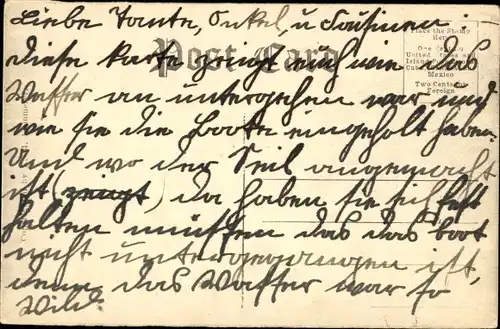 Liebe Tante, Onkel, u Cousinen –
diese Karte zeigt euch wie das
Wasser am untergehen war und
wie sie die Boote eingeholt haben.
Und wo der Seil angemacht
ist (zeigt) da haben sie sich fest
halten müssen das das boot
nicht untergegangen ist,
denn das Wasser war so
Wild.
Post Card
Place the Stamp
Here
One Cent for
United States
Island
Cuba
Mexico
Two Cents for
Foreign